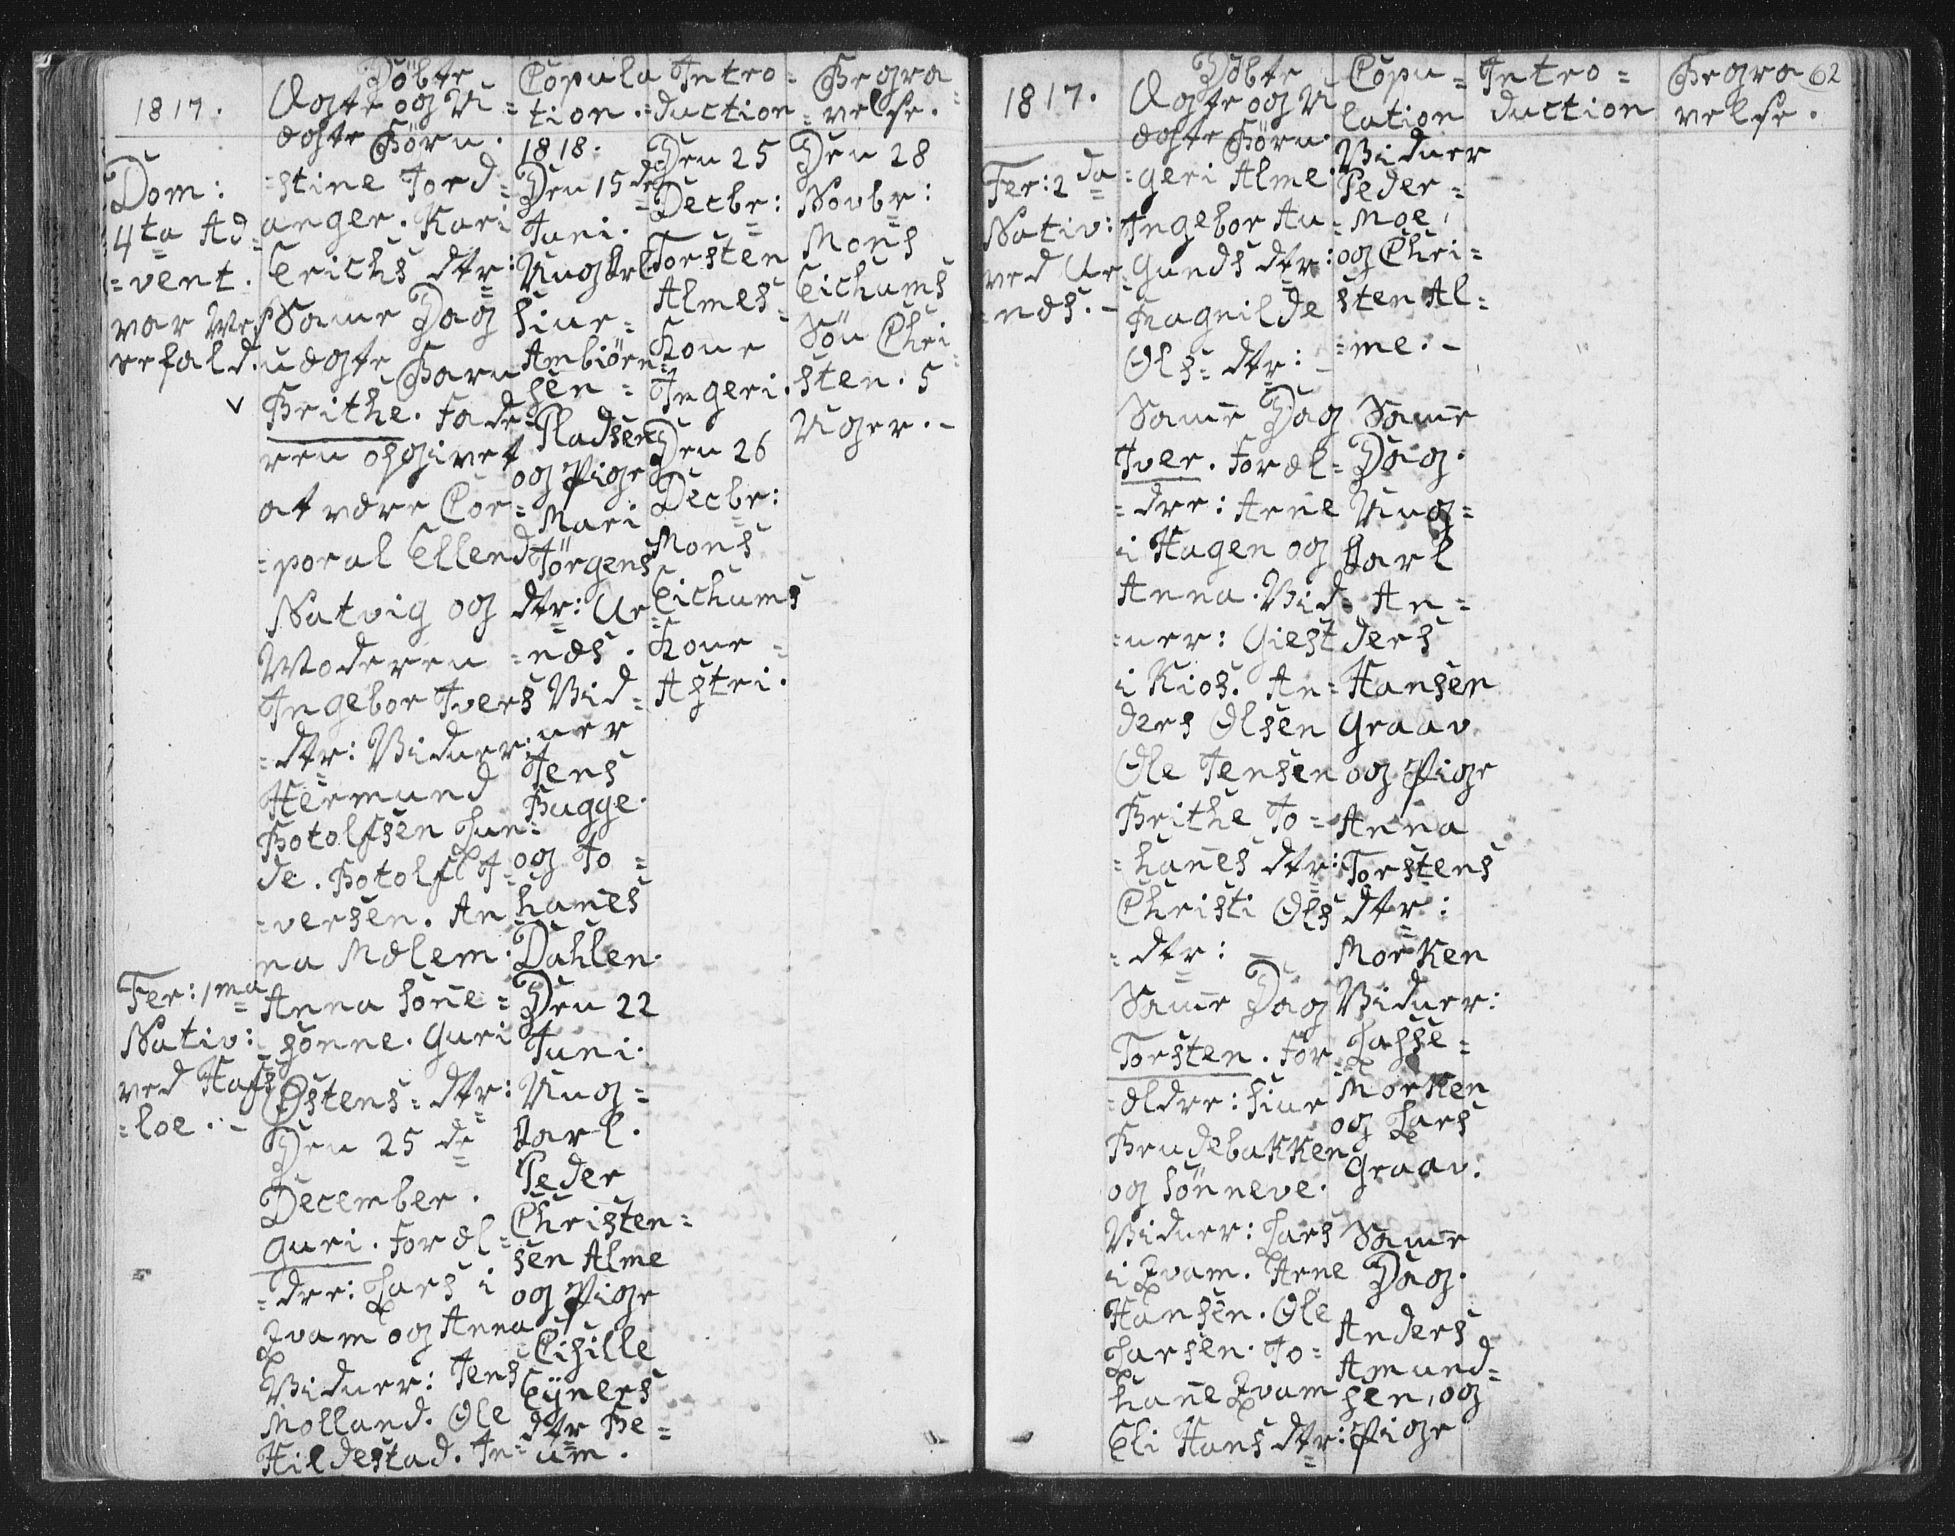 1817.
Döbte
Ægte og U=
ægte Börn.
Copula
tion.
Intro=
=duction
Begra=
=velse.
Dom:
4ta Ad=
=vent.
var Mes
sefald.
=stine Jord=
anger. Kari
Erichs dtr:
Same Dag
uægte Barn
Brithe. Fade
ren opgivet
at være Cor=
=poral Ellend
Natvig og
Moderen
Ingebor Ivers
=dtr: Vidner:
Hermund
Botolfsen Lun=
de. Botolf I=
=versen. An
na Mælem.
Fer: 1ma
Nativ:
ved Hafs
=loe. -
Anna Sönne=
sönne. Guri
Østens= dtr:
Den 25 de
December.
Guri. Foræl=
=dre: Lars i
Qvam og Anna
Vidner: Jens
Molland. Ole
Hildestad. In=
1818.
Den 15 de
Juni.
Ungkrl
Siur=
Ambiörn
sen=
Pladsen
og Pige
Mari
Jörgens
dtr: Ur
=næs.
Vid=
ner
Jens
Bugge.
og Jo=
hanes
Dahlen.
Den 22
Juni.
Ung=
karl.
Peder
Christen=
sen Alme
og Pige
Cisille
Eyners
dtr Be=
um.
Den 25
Decbr:
Torsten
Almes
Kone
Ingeri.
Den 26
Decbr:
Mons
Eichums
Kone
Astri.
Den 28
Novbr:
Mons
Eichums
Sön Chri
sten. 5
Uger. -
1817.
Döbte
Ægte og U
ægte Börn.
Copu=
lation
Intro=
duction
Begra
velse.
62
Fer: 2da
Nativ:
ved Ur
næs. -
=geri Alme.
Ingebor Au=
Gunds dtr:
Ragnilde
Ols= dtr: -
Same Dag
Iver. Foræl=
=dre: Arne
i Hagen og
Anna. Vid=
=ner: Giest
i Kios. An=
ders Olsen
Ole Jensen
Brithe Jo=
=hanes dtr:
Christi Ols
=dtr: -
Same Dag
Torsten. For
=ældre: Siur
Brudebakken
og Sönneve.
Vidner: Lars
i Qvam. Arne
Hansen. Ole
Larsen. Jo=
hane Qvam
Eli Hans dtr:
Vidner
Peder=
Moe,
og Chri=
sten Al=
=me. -
Same
Dag.
Ung=
karl
An=
ders
Hansen
Graav
og Pige
Anna
Torstens
dtr:
Morken
Vidner:
Lasse=
Morken
og Lars
Graav.
Same
Dag.
Anders
Amund=
sen, og
Pige